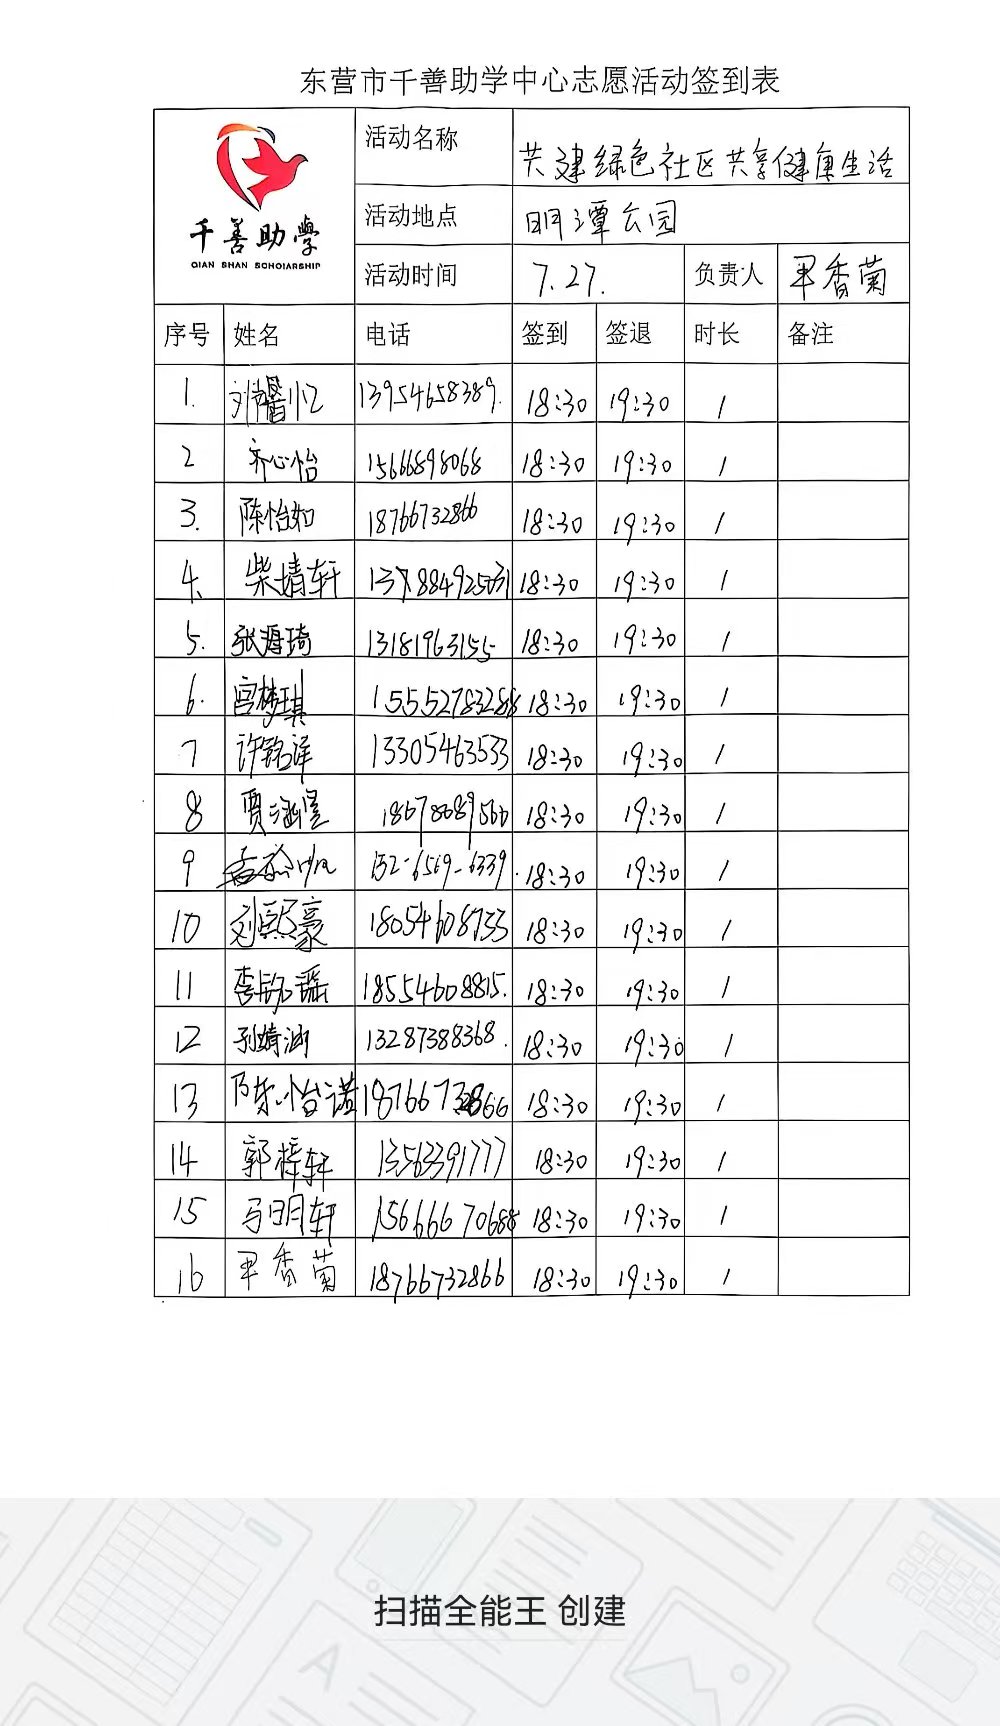 东营市千善助学中心志愿活动签到表
千善助学
QIAN SHAN SCHOlARSHIP
活动名称 共建绿色社区共享健康生活
活动地点 明潭公园
活动时间 7.27. 负责人 香菊
序号 姓名 电话 签到 签退 时长 备注
1. 刘馨忆 13954658389. 18:30 19:30 1
2 齐心怡 15666898068 18:30 19:30 1
3. 陈怡如 18766732866 18:30 19:30 1
4. 柴婧轩 18:30 19:30 1
5. 张海琦 13181963155 18:30 19:30 1
6. 宫梦琪 15552783288 18:30 19:30 1
7 许铭洋 13305463533 18:30 19:30 1
8 贾涵 18678089566 18:30 19:30 1
9 152-6569-6339. 18:30 19:30 1
10 刘熙豪 18054608733 18:30 19:30 1
11 李铭瑶 18554608815. 18:30 19:30 1
12 孙婧涵 13287388368. 18:30 19:30 1
13 陈怡诺 18766732866 18:30 19:30 1
14 郭梓轩 13563391777 18:30 19:30 1
15 马明轩 15666670688 18:30 19:30 1
16 香菊 18766732866 18:30 19:30 1
扫描全能王 创建